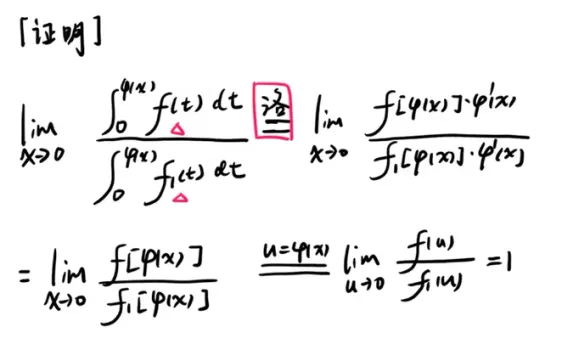 [证明]
lim_{x→0} \frac{∫_0^{φ(x)} f(t) dt}{∫_0^{φ(x)} f_1(t) dt} \overset{洛}{=} lim_{x→0} \frac{f[φ(x)]·φ'(x)}{f_1[φ(x)]·φ'(x)}
= lim_{x→0} \frac{f[φ(x)]}{f_1[φ(x)]} \overset{u=φ(x)}{=} lim_{u→0} \frac{f(u)}{f_1(u)} = 1